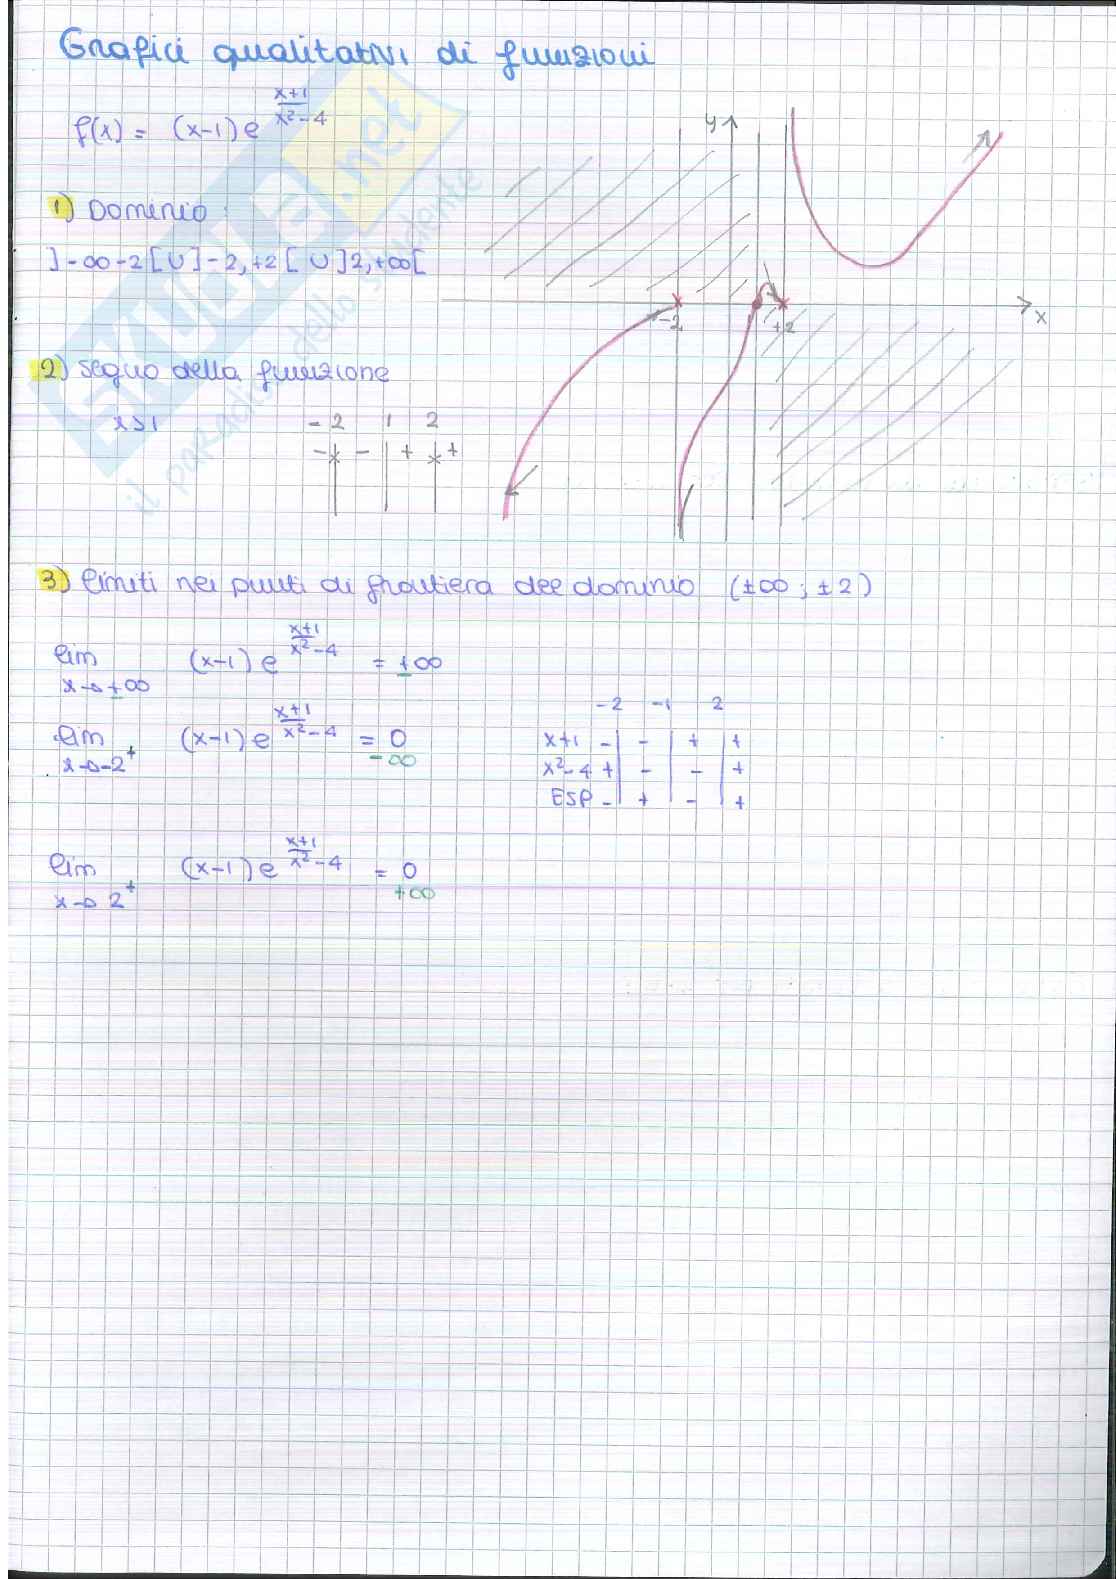 Grafici qualitativi di funzioni
f(x) = (x-1) e^{\frac{x+1}{x^2-4}}
1) Dominio:
]-∞ -2[ ∪ ]-2,+2[ ∪ ]2,+∞[
2) segno della funzione
x>1
-2 1 2
- x - + x +
y
-2 +2 x
3) limiti nei punti di frontiera del dominio (±∞ ; ±2)
lim x→±∞ (x-1) e^{\frac{x+1}{x^2-4}} = ±∞
lim x→-2^+ (x-1) e^{\frac{x+1}{x^2-4}} = 0
-∞
-2 -1 2
x+1 - | - | + | +
x^2-4 + | - | - | +
ESP - | + | - | +
lim x→2^+ (x-1) e^{\frac{x+1}{x^2-4}} = 0
+∞
skuola.net
il paradiso dello studente